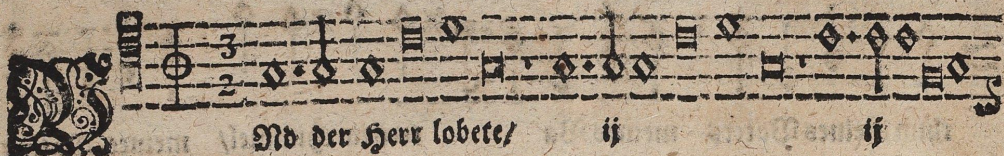 3
2
UNd der Herr lobete/ ij ij